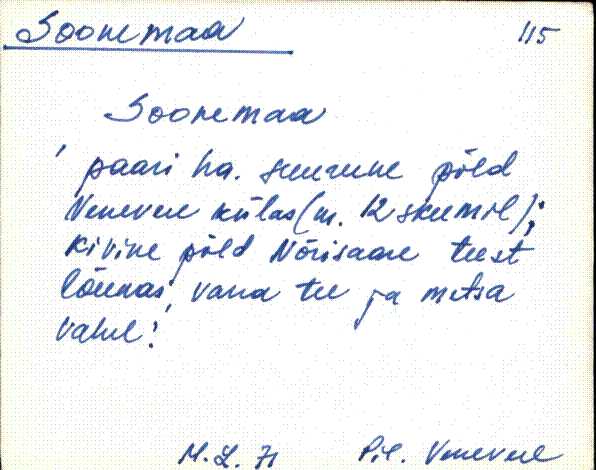 Soonemaa 115
Soonemaa
' paari ha. suurune põld
Venevere külas (m. 12 skeemil);
kivine põld Nõrisaare teest
lõunas, vana tee ja metsa
vahel.'
M. L. 71 Pil. Venevere